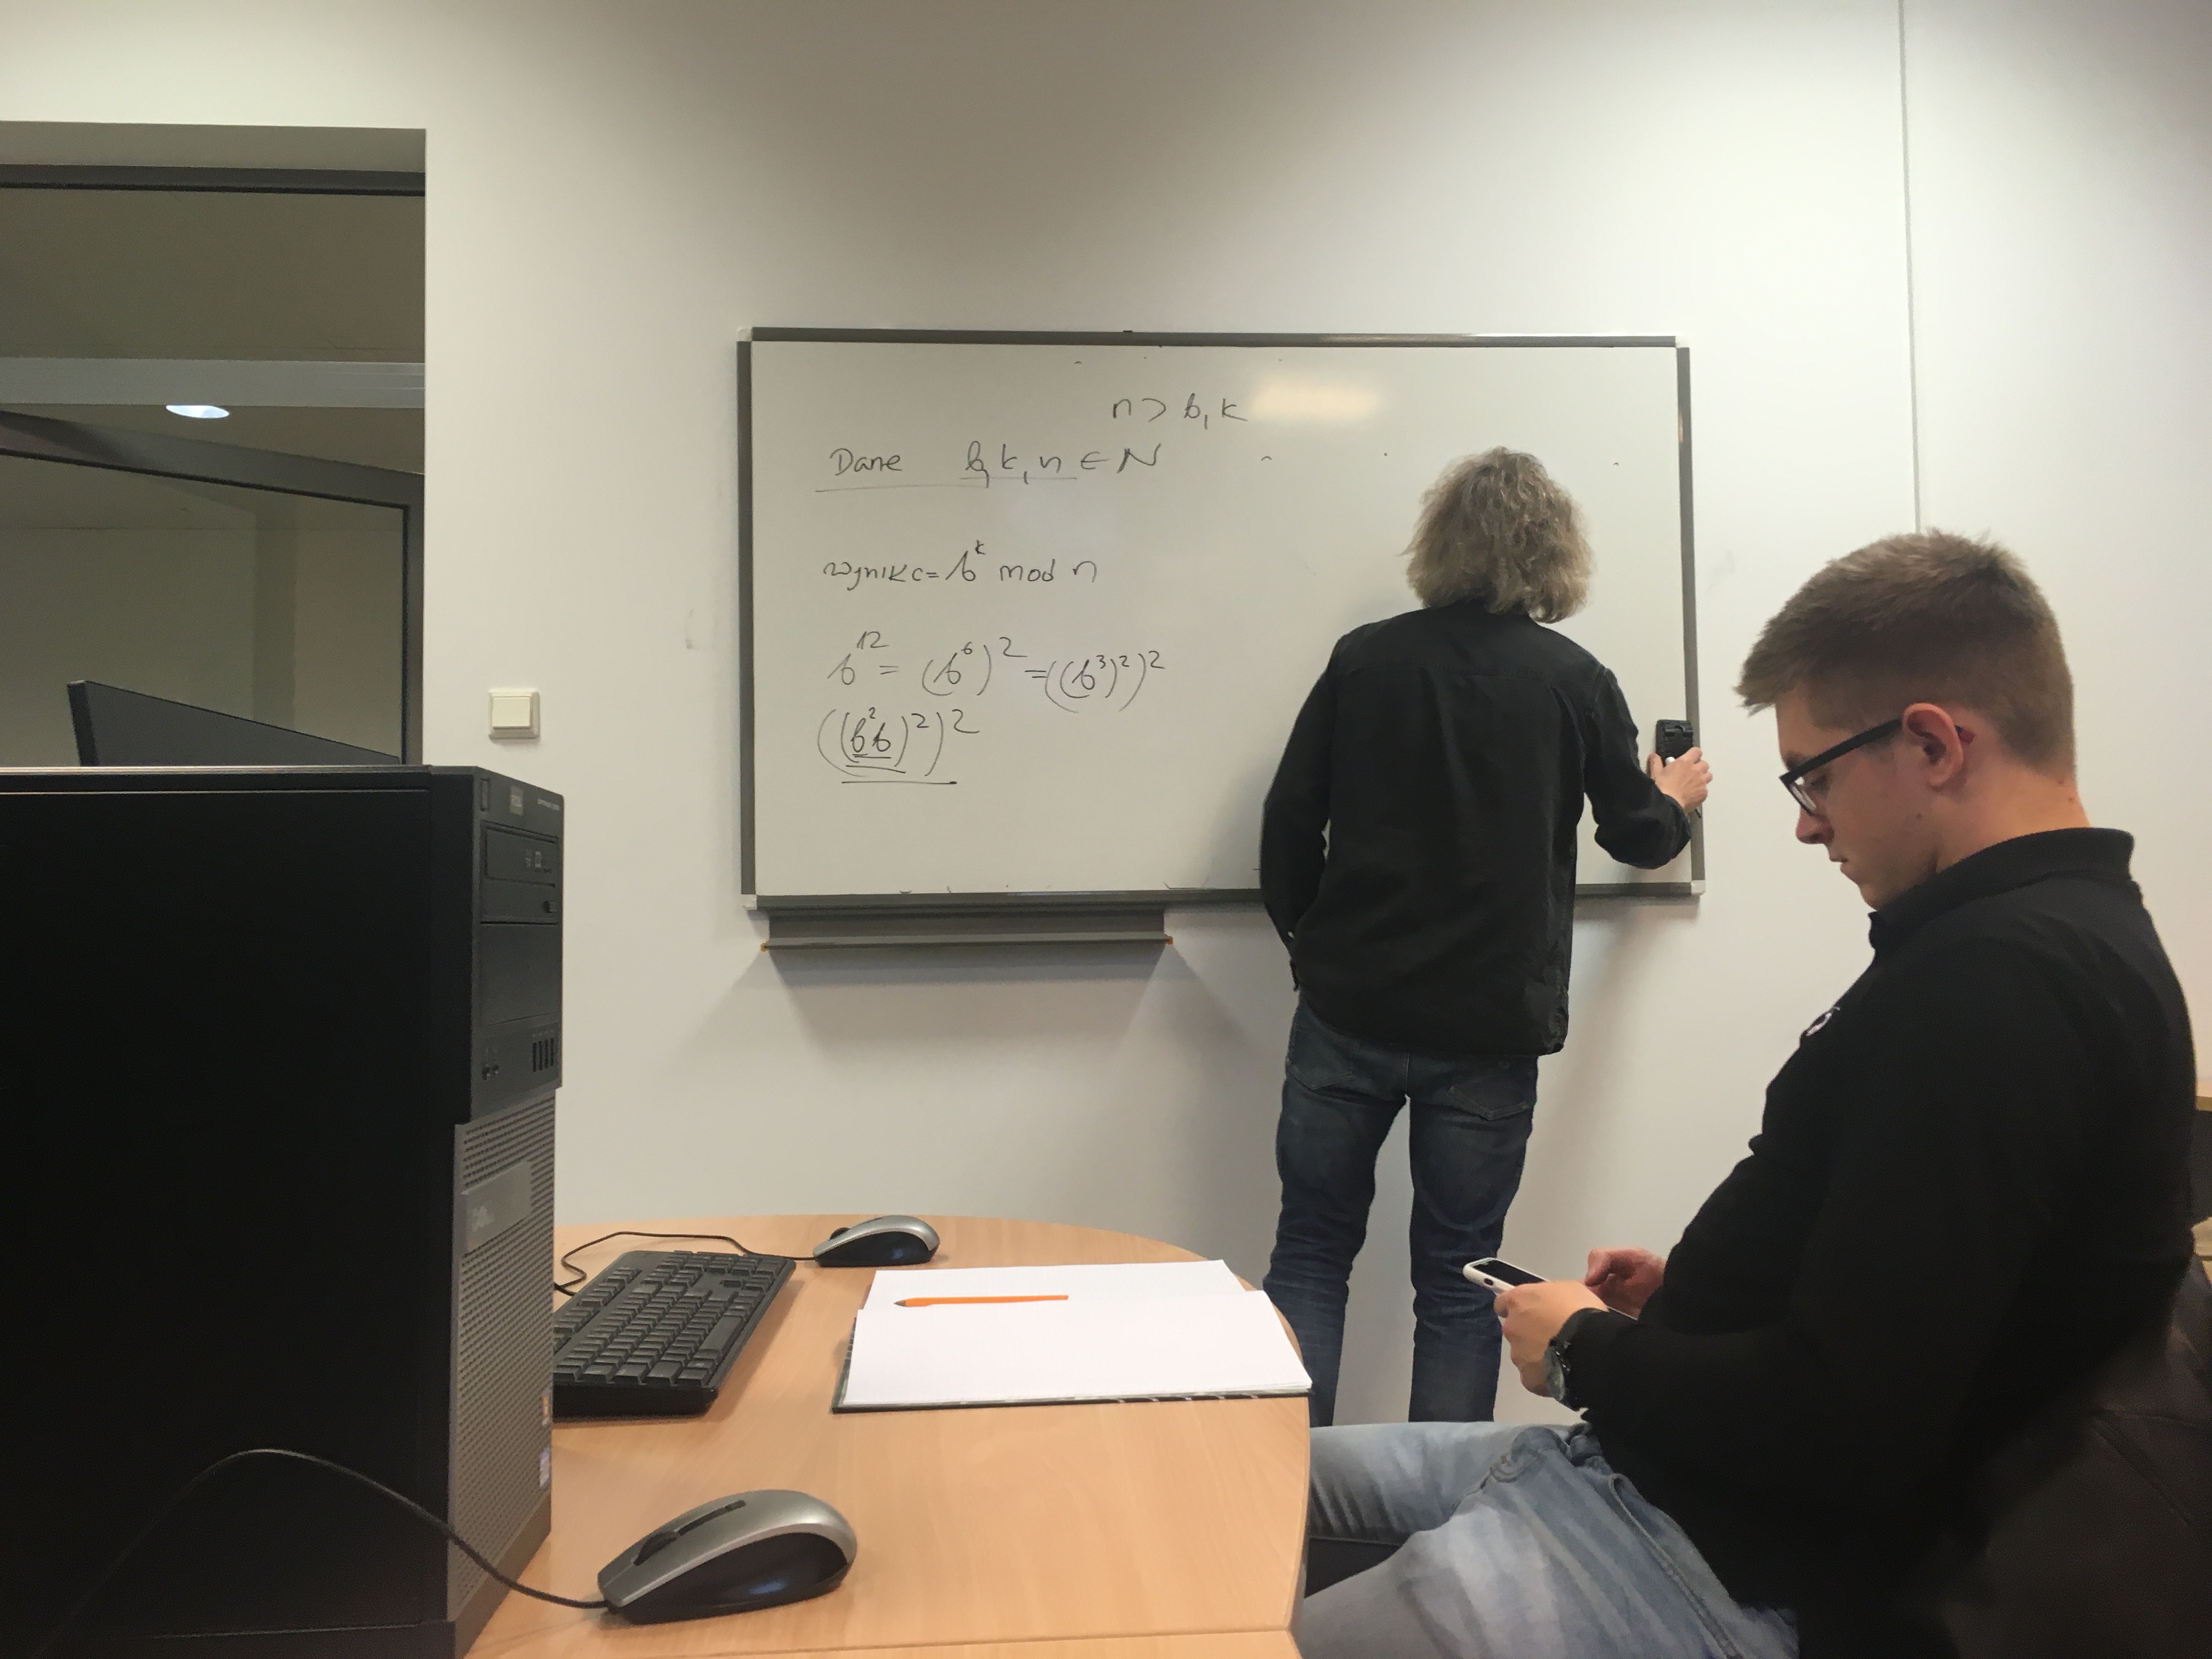 n > b, k
Dane b, k, n ∈ N
wynik c = b^k mod n
b^12 = (b^6)^2 = ((b^3)^2)^2
((b^2 b)^2)^2